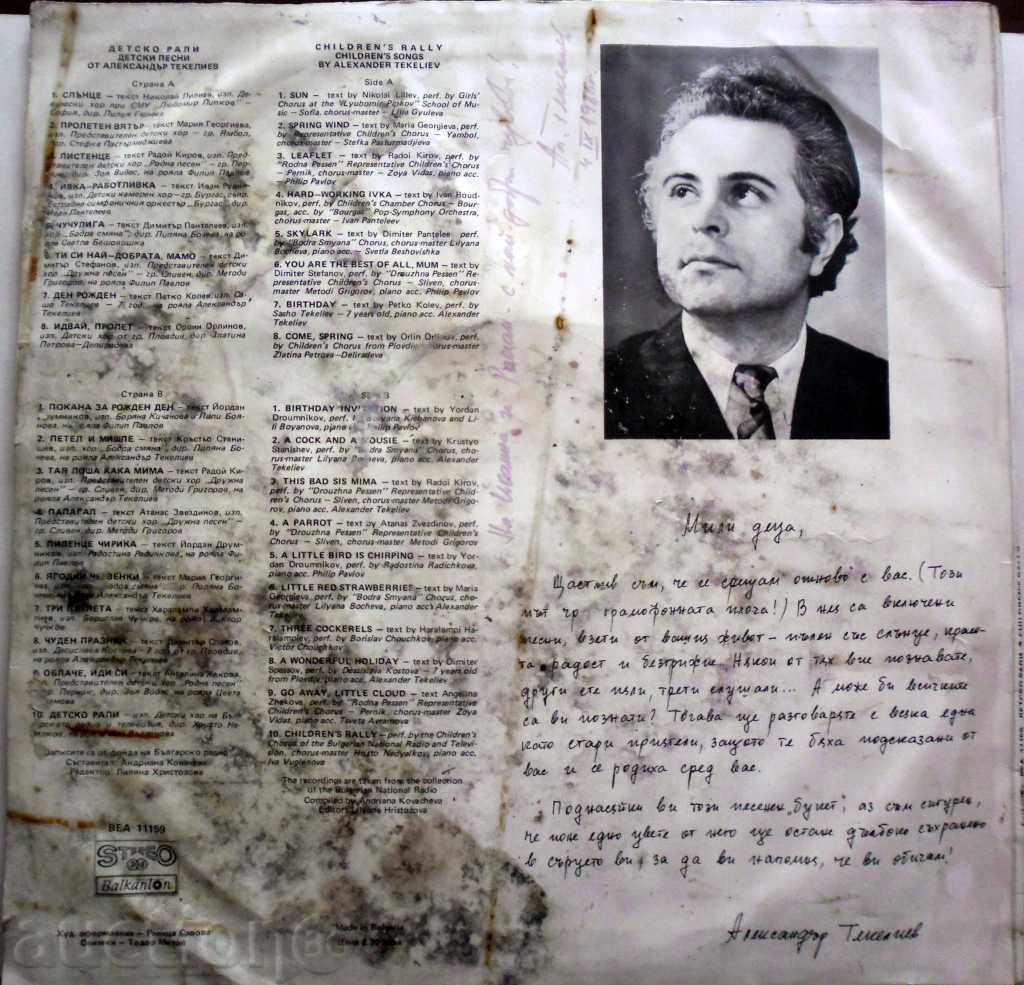 ДЕТСКО РАЛИ
ДЕТСКИ ПЕСНИ
ОТ АЛЕКСАНДЪР ТЕКЕЛИЕВ
Страна А
1. СЛЪНЦЕ – текст Николай Лилиев, изп. Де-
вически хор при СМУ „Любомир Пипков" –
София, дир. Лилия Гюлева
2. ПРОЛЕТЕН ВЯТЪР – текст Мария Георгиева,
изп. Представителен детски хор – гр. Ямбол,
дир. Стефка Пастърмаджиева
3. ЛИСТЕНЦЕ – текст Радой Киров, изп. Пред-
ставителен детски хор „Родна песен" – гр. Пер-
ник, дир. Зоя Видас, на рояла Филип Павлов
4. ИВКА-РАБОТЛИВКА – текст Иван
изп. Детски камерен хор – гр. Бургас, съпр.
симфоничния оркестър „Бургас",
Иван Пантелеев
5. ЧУЧУЛИГА – текст Димитър Пантелеев, изп.
хор „Бодра смяна", дир. Лиляна Бочева, на роя-
ла Светла Бешовишка
6. ТИ СИ НАЙ-ДОБРАТА, МАМО – текст Ди-
митър Стефанов, изп. Представителен детски
хор „Дружна песен" – гр. Сливен, дир. Методи
Григоров, на рояла Филип Павлов
7. ДЕН РОЖДЕН – текст Петко Колев, изп. Са-
шо Текелиев – 7 год., на рояла Александър
Текелиев
8. ИДВАЙ, ПРОЛЕТ – текст Орлин Орлинов,
изп. Детски хор от гр. Пловдив, дир. Златина
Петрова–Делирадева
Страна В
1. ПОКАНА ЗА РОЖДЕН ДЕН – текст Йордан
Друмников, изп. Боряна Кичанова и Лили Боя-
нова, на рояла Филип Павлов
2. ПЕТЕЛ И МИШЛЕ – текст Кръстьо Стани-
шев, изп. хор „Бодра смяна", дир. Лиляна Бо-
чева, на рояла Александър Текелиев
3. ТАЯ ЛОША КАКА МИМА – текст Радой Ки-
ров, изп. Представителен детски хор „Дружна
песен" – гр. Сливен, дир. Методи Григоров, на
рояла Александър Текелиев
4. ПАПАГАЛ – текст Атанас Звездинов, изп.
Представителен детски хор „Дружна песен" –
гр. Сливен, дир. Методи Григоров
5. ПИЛЕНЦЕ ЧИРИКА – текст Йордан Друм-
ников, изп. Радостина Радичкова, на рояла Фи-
лип Павлов
6. ЯГОДКИ ЧЕРВЕНКИ – текст Мария Георги-
ева, изп. хор „Бодра смяна", дир. Лиляна Бо-
чева, на рояла Александър Текелиев
7. ТРИ ПЕТЛЕТА – текст Харалампи Харалам-
пиев, изп. Борислав Чоучков, на рояла Виктор
Чучков
8. ЧУДЕН ПРАЗНИК – текст Димитър Спасов,
изп. Десислава Костова – 7 год. от гр. Пловдив,
на рояла Александър Текелиев
9. ОБЛАЧЕ, ИДИ СИ – текст Ангелина Жекова,
изп. Представителен детски хор „Родна песен" –
гр. Перник, дир. Зоя Видас, на рояла Цвета
10. ДЕТСКО РАЛИ – изп. Детски хор на Бъл-
гарското радио и телевизия, дир. Христо Не-
дялков, на рояла
Записите са от фонда на Българско радио
Съставител: Андриана Ковачева
Редактор: Лиляна Христозова
ВЕА 11159
STEREO
Balkanton
Худ. оформление – Ренина Савова
Снимки – Тодор Митов
CHILDREN'S RALLY
CHILDREN'S SONGS
BY ALEXANDER TEKELIEV
Side A
1. SUN – text by Nikolai Liliev, perf. by Girls'
Chorus at the "Lyubomir Pipkov" School of Mu-
sic – Sofia, chorus-master – Lilia Gyuleva
2. SPRING WIND – text by Maria Georgieva, perf.
by Representative Children's Chorus – Yambol,
chorus-master – Stefka Pasturmadjieva
3. LEAFLET – text by Radoi Kirov, perf. by
"Rodna Pessen" Representative Children's Chorus –
Pernik, chorus-master – Zoya Vidas, piano acc.
Philip Pavlov
4. HARD–WORKING IVKA – text by Ivan Roud-
nikov, perf. by Children's Chamber Chorus – Bour-
gas, acc. by "Bourgas" Pop-Symphony Orchestra,
chorus-master – Ivan Panteleev
5. SKYLARK – text by Dimiter Panteleev, perf.
by "Bodra Smyana" Chorus, chorus-master Lilyana
Bocheva, piano acc. – Svetla Beshovishka
6. YOU ARE THE BEST OF ALL, MUM – text by
Dimiter Stefanov, perf. by "Drouzhna Pessen" Re-
presentative Children's Chorus – Sliven, chorus-
master Metodi Grigorov, piano acc. Philip Pavlov
7. BIRTHDAY – text by Petko Kolev, perf. by
Sasho Tekeliev – 7 years old, piano acc. Alexander
Tekeliev
8. COME, SPRING – text by Orlin Orlinov, perf.
by Children's Chorus from Plovdiv, chorus-master
Zlatina Petrova–Deliradeva
Side B
1. BIRTHDAY INVITATION – text by Yordan
Droumnikov, perf. by Boryana Kichanova and Li-
li Boyanova, piano acc. Philip Pavlov
2. A COCK AND A MOUSIE – text by Krustyo
Stanishev, perf. by "Bodra Smyana" Chorus, cho-
rus-master Lilyana Bocheva, piano acc. Alexander
Tekeliev
3. THIS BAD SIS MIMA – text by Radoi Kirov,
perf. by "Drouzhna Pessen" Representative Child-
ren's Chorus – Sliven, chorus-master Metodi Grigo-
rov, piano acc. Alexander Tekeliev
4. A PARROT – text by Atanas Zvezdinov, perf.
by "Drouzhna Pessen" Representative Children's
Chorus – Sliven, chorus-master Metodi Grigorov
5. A LITTLE BIRD IS CHIRPING – text by Yor-
dan Droumnikov, perf. by Radostina Radichkova,
piano acc. Philip Pavlov
6. LITTLE RED STRAWBERRIES – text by Maria
Georgieva, perf. by "Bodra Smyana" Chorus, cho-
rus-master Lilyana Bocheva, piano acc. Alexander
Tekeliev
7. THREE COCKERELS – text by Haralampi Ha-
ralampiev, perf. by Borislav Chouchkov, piano acc.
Victor Chouchkov
8. A WONDERFUL HOLIDAY – text by Dimiter
Spassov, perf. by Dessislava Kostova – 7 years old
from Plovdiv, piano acc. Alexander Tekeliev
9. GO AWAY, LITTLE CLOUD – text by Angelina
Zhekova, perf. by "Rodna Pessen" Representative
Children's Chorus – Pernik, chorus-master Zoya
Vidas, piano acc. Tsveta Avramova
10. CHILDREN'S RALLY – perf. by the Children's
Chorus of the Bulgarian National Radio and Televi-
sion, chorus-master Hristo Nedyalkov, piano acc.
Iva Vuglenova
The recordings are taken from the collection
of the Bulgarian National Radio
Compiled by Andriana Kovacheva
Editors Lilyana Hristozova
Made in Bulgaria
Цена
Мили деца,
Щастлив съм, че се срещам отново с вас. (Този
път чр. грамофонната плоча!) В нея са включени
песни, взети от вашия живот – пълен със слънце, красо-
та, радост и безгрижие. Някои от тях вие познавате,
други сте пели, трети слушали... А може би всичките
са ви познати? Тогава ще разговаряте с всяка една
като стари приятели, защото те бяха подсказани от
вас и се родиха сред вас.
Поднасяйки ви този песенен „букет", аз съм сигурен,
че поне едно цвете от него ще остане дълбоко съхранено
в сърцето ви, за да ви напомня, че ви обичам!
Александър Текелиев